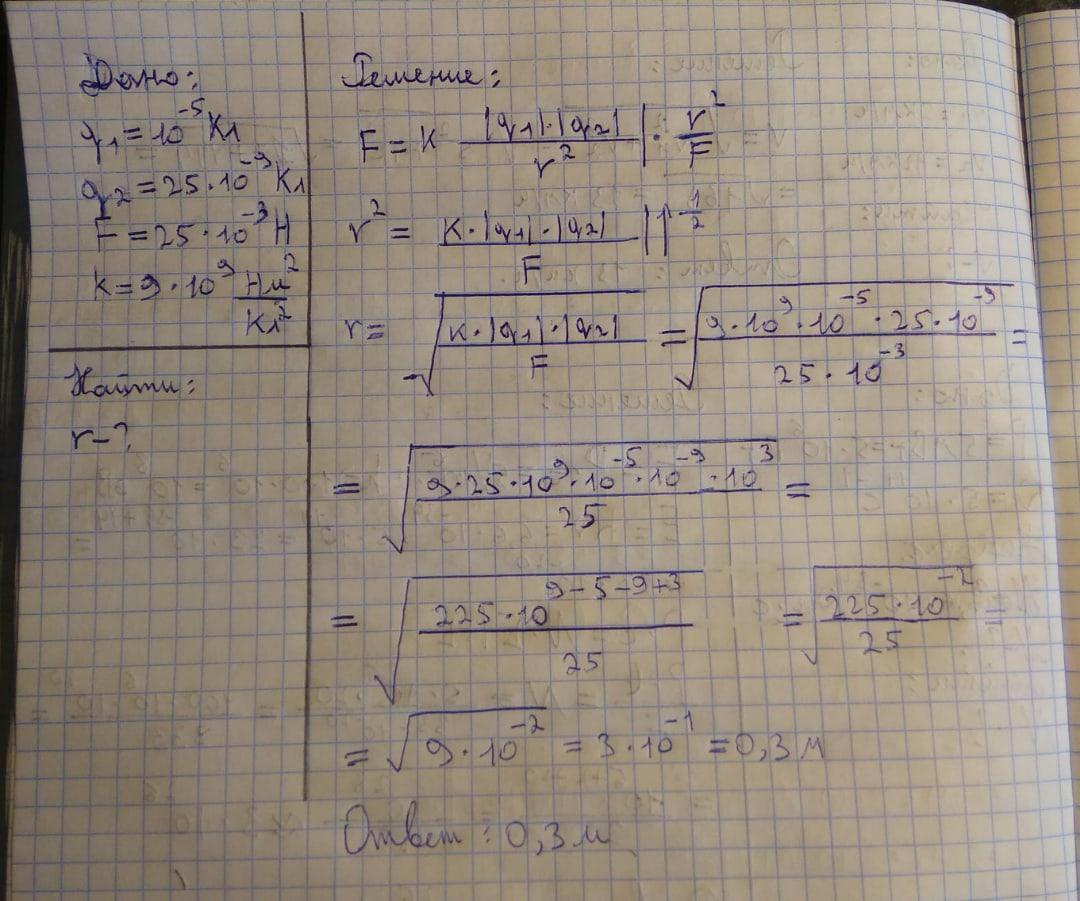 Дано:
q₁ = 10⁻⁵ Кл
q₂ = 25 · 10⁻⁹ Кл
F = 25 · 10⁻³ Н
k = 9 · 10⁹ Нм²/Кл²
Найти:
r – ?
Решение:
F = k |q₁| · |q₂| / r² | · r²/F
r² = k · |q₁| · |q₂| / F || ↑ 1/2
r = √(k · |q₁| · |q₂| / F) = √(9 · 10⁹ · 10⁻⁵ · 25 · 10⁻⁹ / 25 · 10⁻³) =
= √(9 · 25 · 10⁹ · 10⁻⁵ · 10⁻⁹ · 10³ / 25) =
= √(225 · 10⁹⁻⁵⁻⁹⁺³ / 25) = √(225 · 10⁻² / 25) =
= √(9 · 10⁻²) = 3 · 10⁻¹ = 0,3 м
Ответ : 0,3 м